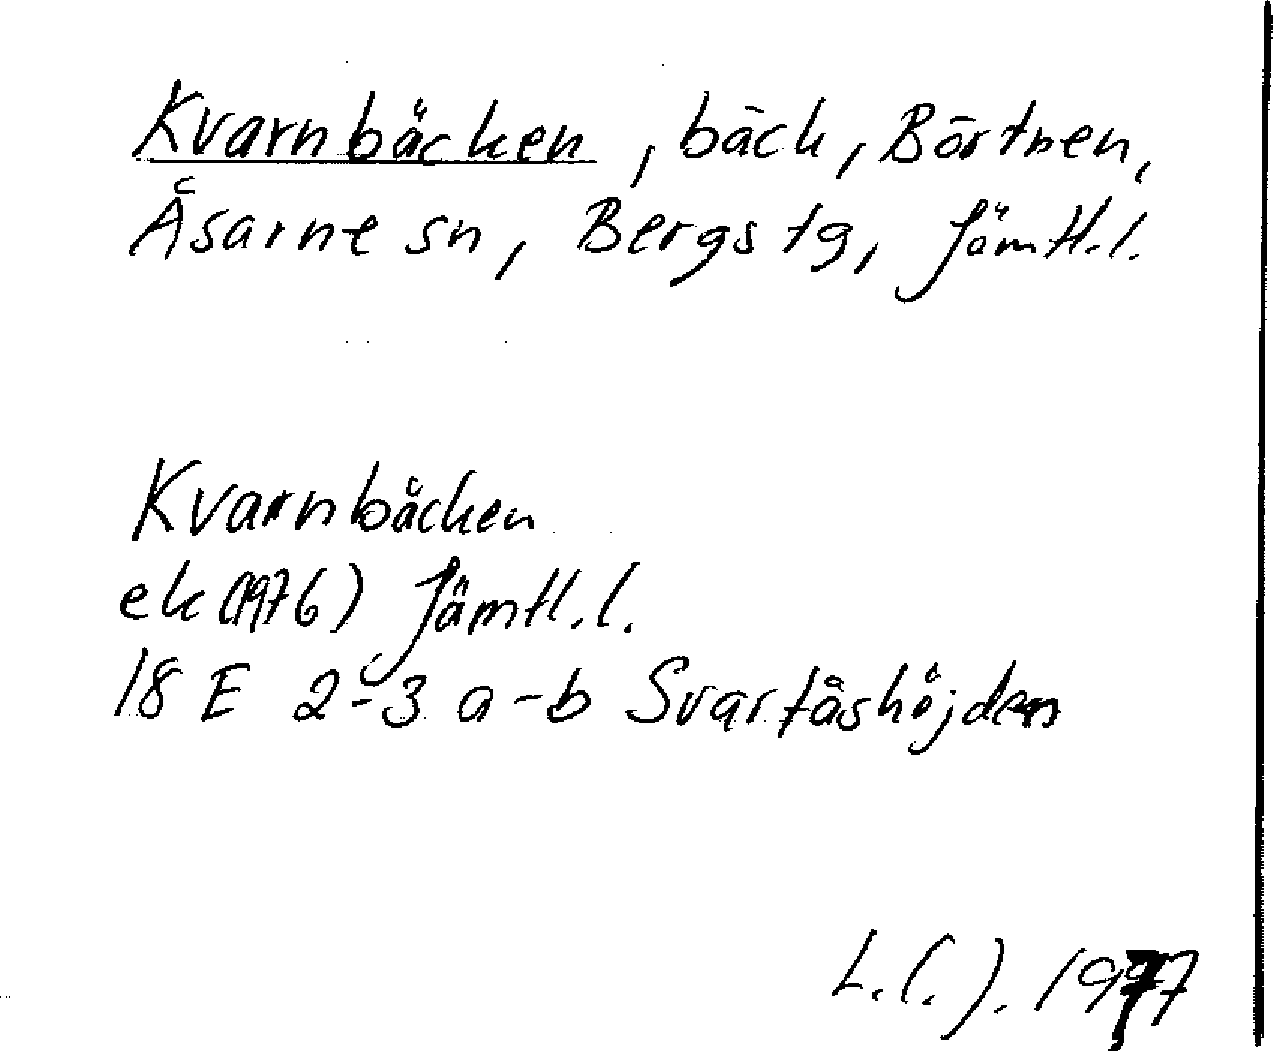 Kvarnbäcken, bäck, Börtnen,
Åsarne sn, Bergs tg, Jämtl.l.
Kvarnbäcken
ek (1976) Jämtl.l.
18 E 2-3 a-b Svartåshöjden
L.(.). 1977